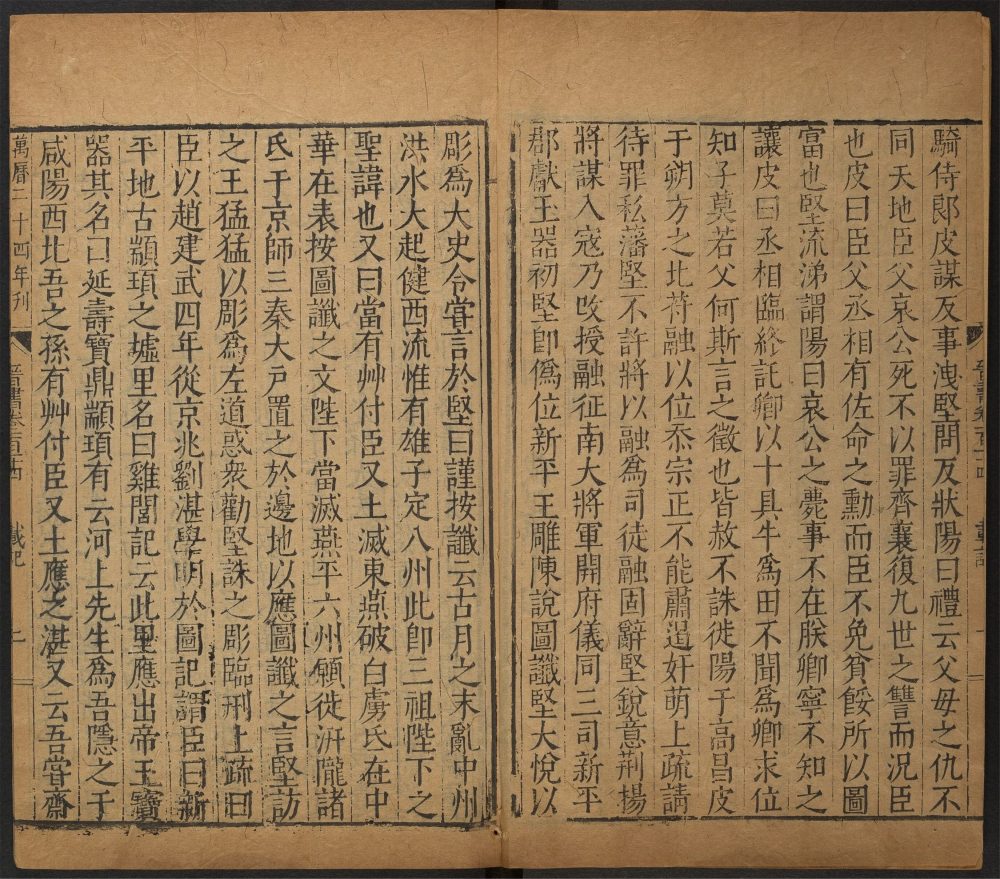 騎侍郎皮謀反事洩堅問反狀陽曰禮云父母之仇不
同天地臣父哀公死不以罪齊襄復九世之讐而況臣
也皮曰臣父丞相有佐命之勳而臣不免貧餒所以圖
富也堅流涕謂陽曰哀公之薨事不在朕卿寧不知之
讓皮曰丞相臨終託卿以十具牛為田不聞為卿求位
知子莫若父何斯言之徵也皆赦不誅徙陽于高昌皮
于朔方之北苻融以位忝宗正不能肅遏奸萌上疏請
待罪私藩堅不許將以融為司徒融固辭堅銳意荆揚
將謀入寇乃攺授融征南大將軍開府儀同三司新平
郡獻玉器初堅即僞位新平王雕陳說圖讖堅大悅以
彫爲大史令嘗言於堅曰謹按讖云古月之末亂中州
洪水大起健西流惟有雄子定八州此即三祖陛下之
聖諱也又曰當有艸付臣又土滅東燕破白虜氐在中
華在表按圖讖之文陛下當滅燕平六州願徙汧隴諸
氐于京師三秦大戸置之於邊地以應圖讖之言堅訪
之王猛猛以彫爲左道惑衆勸堅誅之彫臨刑上疏曰
臣以趙建武四年從京兆劉湛學明於圖記謂臣曰新
平地古顓頊之墟里名曰雞閭記云此里應出帝王寶
器其名曰延壽寶鼎顓頊有云河上先生爲吾隱之于
咸陽西北吾之孫有艸付臣又土應之湛又云吾嘗齋
萬曆二十四年刊
晉書卷一百十四 載記 二